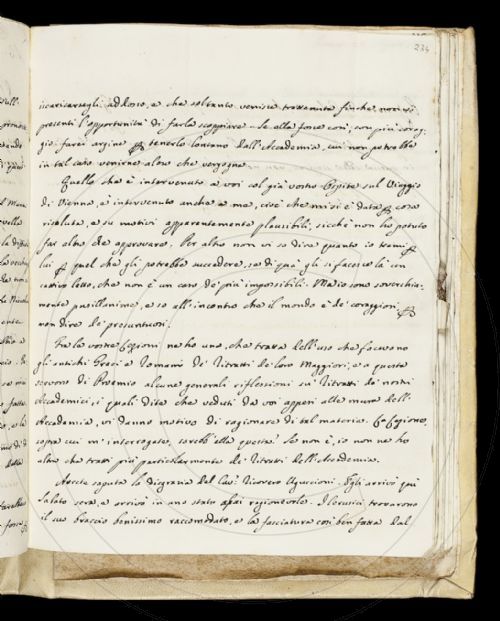 234
scaricarsegli addosso, e che soltanto venisse trattenuta finche non si
presenti l'opportunità di farla scoppiare. Se ella fosse così, con più corag-
gio farei argine per tenerlo lontano dall'Accademia, cui non potrebbe
in tal caso venirne altro che vergogna.
Quello che è intervenuto a voi col già vostro Ospite sul Viaggio
di Vienna, è intervenuto anche a me, cioè che mi si è data per cosa
risoluta, e su motivi apparentemente plausibili; sicchè non ho potuto
far altro che approvare. Per altro non vi so dire quanto io temi per
lui per quel che gli potrebbe succedere, se di quà gli si facesse là un
cattivo letto, che non è un caso de' più impossibili. Ma io sono soverchia-
mente pusillanime, e so all'incontro che il mondo è de' coraggiosi, per
non dire de' presuntuosi.
Tra le vostre Lezioni ne ho una, che tratta dell'uso che facevano
gli antichi Greci e Romani de' Ritratti de' loro Maggiori, e a questa
servono di Proemio alcune generali riflessioni su' Ritratti de' nostri
Accademici, i quali dite che veduti da voi appesi alle mura dell'
Accademia, vi danno motivo di ragionare di tal materia. La Lezione,
sopra cui m'interrogate, sarebb'ella questa? Se non è, io non ne ho
altra che tratti più particolarmente de' Ritratti dell'Accademia.
Avrete saputa la disgrazia del Cav. Aguccioni. Egli arrivò quì
Sabato sera, e arrivò in uno stato assai ragionevole. I Cerusici trovarono
il suo braccio benissimo raccomodato, e la fasciatura così ben fatta dal